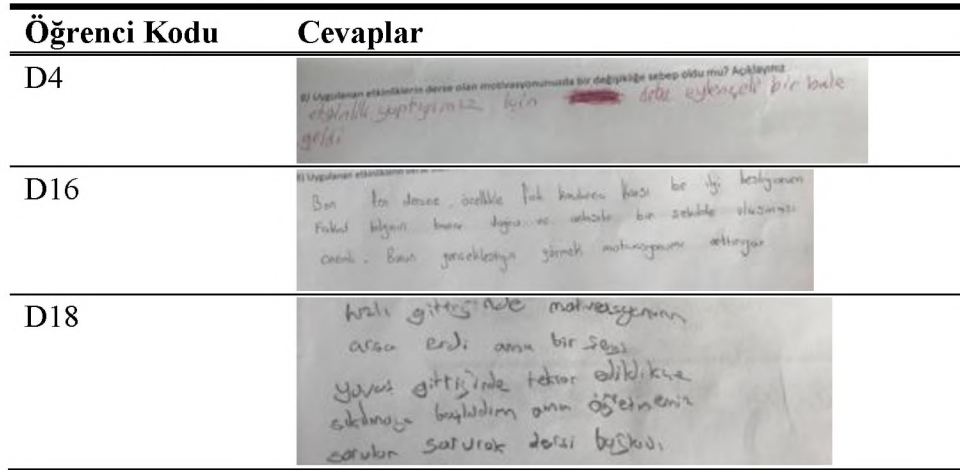 Öğrenci Kodu Cevaplar
D4
8) Uygulanan etkinliklerin derse olan motivasyonunuzda bir değişikliğe sebep oldu mu? Açıklayınız
etkinlik yaptığımız için daha eylenceli bir hale
geldi
D16
Ben fen dersine özellikle fizik karşı bir ilgi besliyorum
Fakat bilginin bana doğru ve bir şekilde ulaşması
önemli. Bunun gerçekleştiğini görmek motivasyonumu arttırıyor
D18
hızlı gittiğinde motivasyonum
erdi ama bir şeyi
yavaş gittiğinde tekrar edildikçe
sıkılmaya başladım ama öğretmenimiz
sorular sorurak dersi